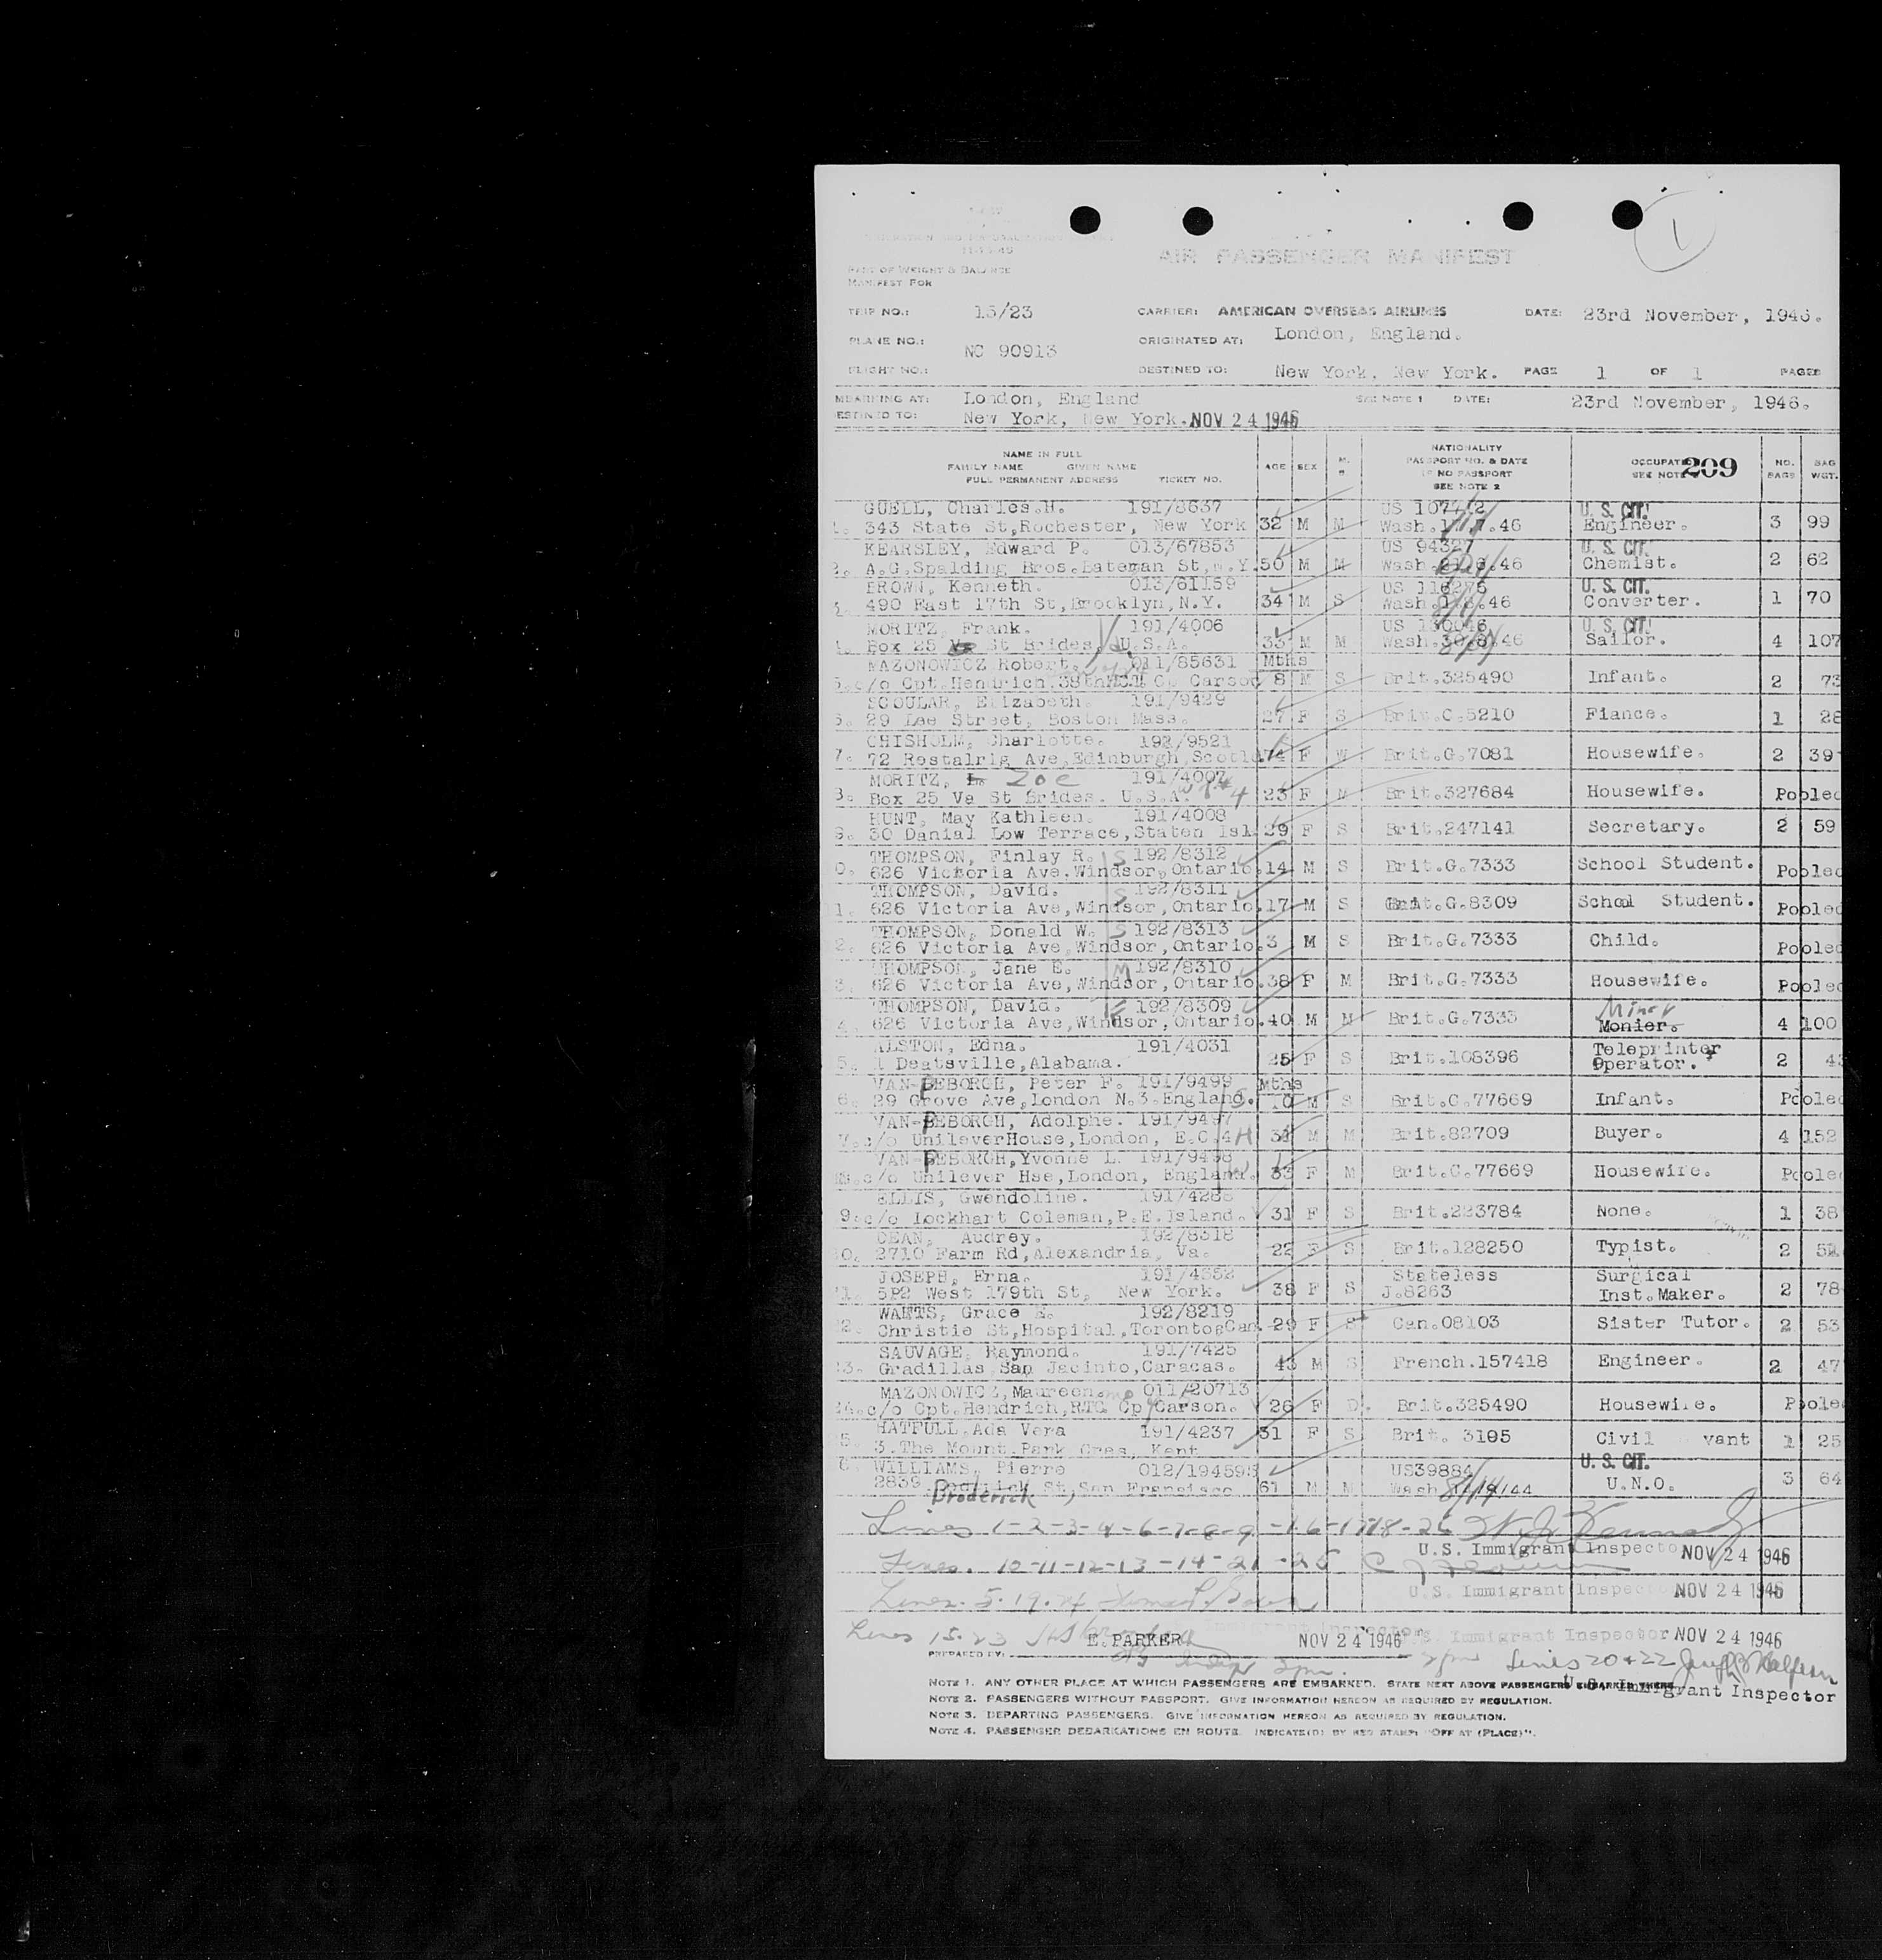 11-15-45
AIR PASSENGER MANIFEST
PART OF WEIGHT & BALANCE
MANIFEST FOR
TRIP NO.: 15/23 CARRIER: AMERICAN OVERSEAS AIRLINES DATE: 23rd November, 1946.
PLANE NO.: NC 90913 ORIGINATED AT: London, England.
FLIGHT NO.: DESTINED TO: New York, New York. PAGE 1 OF 1 PAGES
MBARKING AT: London, England SEE NOTE 1 DATE: 23rd November, 1946.
ESTINED TO: New York, New York. NOV 24 1946
NAME IN FULL
FAMILY NAME GIVEN NAME
FULL PERMANENT ADDRESS TICKET NO.
AGE SEX M. S
NATIONALITY
PASSPORT NO. & DATE
IF NO PASSPORT
SEE NOTE 2
OCCUPATIO
SEE NOTE 209
NO. BAGS BAG WGT.
GUELL, Charles.H. 191/8637 US U. S. CIT.
1. 343 State St,Rochester, New York 32 M M Wash. .46 Engineer. 3 99
KEARSLEY, Edward P. 013/67853 US 94327 U. S. CIT.
2. A.G.Spalding Bros.Bateman St,N.Y. 50 M M Wash. .46 Chemist. 2 62
BROWN, Kenneth. 013/61159 US 116276 U. S. CIT.
3. 490 East 17th St,Brooklyn,N.Y. 34 M S Wash. .46 Converter. 1 70
MORITZ, Frank. 191/4006 US 130046 U. S. CIT.
4. Box 25 St Brides, U.S.A. 33 M M Wash. .46 Sailor. 4 107
MAZONOWICZ Robert. 011/85631 Mths
5. c/o Cpt.Hendrich.38th Carson 8 M S Brit.325490 Infant. 2 73
SCOULAR, Elizabeth. 191/9429
6. 29 Lee Street, Boston Mass. 27 F S Brit.C.5210 Fiance. 1 28
CHISHOLM, Charlotte. 192/9521
7. 72 Restalrig Ave,Edinburgh,Scotld. 74 F W Brit.G.7081 Housewife. 2 39
MORITZ, Zoe 191/4007
8. Box 25 Va St Brides. U.S.A. W of #4 23 F M Brit.327684 Housewife. Pooled
HUNT, May Kathleen. 191/4008
9. 30 Danial Low Terrace,Staten Isl. 29 F S Brit.247141 Secretary. 2 59
THOMPSON, Finlay R. S 192/8312
0. 626 Victoria Ave.Windsor,Ontario. 14 M S Brit.G.7333 School Student. Pooled
THOMPSON, David. S 192/8311
11. 626 Victoria Ave,Windsor,Ontario. 17 M S Brit.G.8309 School Student. Pooled
THOMPSON, Donald W. S 192/8313
2. 626 Victoria Ave,Windsor,Ontario. 3 M S Brit.G.7333 Child. Pooled
THOMPSON, Jane E. M 192/8310
3. 626 Victoria Ave,Windsor,Ontario. 38 F M Brit.G.7333 Housewife. Pooled
THOMPSON, David. F 192/8309 Miner
4. 626 Victoria Ave,Windsor,Ontario. 40 M M Brit.G.7333 Monier. 4 100
ALSTON, Edna. 191/4031 Teleprinter
5. 1 Deatsville,Alabama. 25 F S Brit.108396 Operator. 2 43
VAN-BEBORGH, Peter F. 191/9499 Mths
6. 29 Grove Ave,London N.3.England. S 10 M S Brit.C.77669 Infant. Pooled
VAN-BEBORGH, Adolphe. 191/9497
7. c/o UnileverHouse,London, E.C.4 H 34 M M Brit.82709 Buyer. 4 152
VAN-BEBORGH,Yvonne L. 191/9498
18. c/o Unilever Hse,London, England. 33 F M Brit.C.77669 Housewife. Pooled
ELLIS, Gwendoline. 191/4288
9. c/o Lockhart Coleman,P.E.Island. 31 F S Brit.223784 None. 1 38
DEAN, Audrey. 192/8318
20. 2710 Farm Rd,Alexandria, Va. 22 F S Brit.128250 Typist. 2 52
JOSEPH, Erna. 191/4352 Stateless Surgical
21. 5P2 West 179th St, New York. 38 F S J.8263 Inst.Maker. 2 78
WANTS, Grace E. 192/8219
2. Christie St,Hospital,Toronto,Can. 29 F S Can.08103 Sister Tutor. 2 53
SAUVAGE, Raymond. 191/7425
23. Gradillas San Jacinto,Caracas. 43 M S French.157418 Engineer. 2 47
MAZONOWICZ,Maureen. 011/20713
24. c/o Cpt.Hendrich,RTC. Cp Carson. 26 F D. Brit.325490 Housewife. Pooled
HATFULL,Ada Vera 191/4237 31 F S Brit. 3105 Civil vant 1 25
5. 3.The Mount.Park Cres, Kent
6. WILLIAMS, Pierre 012/194595 US39884 U. S. CIT.
2839 Broderick St,San Francisco 61 M M Wash 44 U.N.O. 3 64
Lines 1-2-3-4-6-7-8-9-16-17-18-26
U.S. Immigrant Inspector NOV 24 1946
Lines. 10-11-12-13-14-21-25
U.S. Immigrant Inspector NOV 24 1946
Lines. 5.19.24
Lines 15-23 E. PARKER NOV 24 1946 U.S. Immigrant Inspector NOV 24 1946
PREPARED BY:
Lines 20+22
U.S. Immigrant Inspector
NOTE 1. ANY OTHER PLACE AT WHICH PASSENGERS ARE EMBARKED. STATE NEXT ABOVE PASSENGERS EMBARKED THERE.
NOTE 2. PASSENGERS WITHOUT PASSPORT. GIVE INFORMATION HEREON AS REQUIRED BY REGULATION.
NOTE 3. DEPARTING PASSENGERS. GIVE INFORMATION HEREON AS REQUIRED BY REGULATION.
NOTE 4. PASSENGER DEBARKATIONS EN ROUTE. INDICATE(D) BY RED STAMP: "OFF AT (PLACE)".